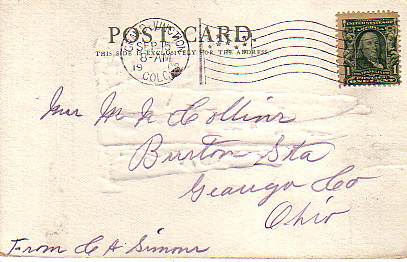 POST CARD.
THIS SIDE IS EXCLUSIVELY FOR THE ADDRESS.
GRAND JUNCTION
SEP 15
8-AM
19
COLO.
Mr M N Collins
Burton Sta
Geauga Co
Ohio
From C A Simour